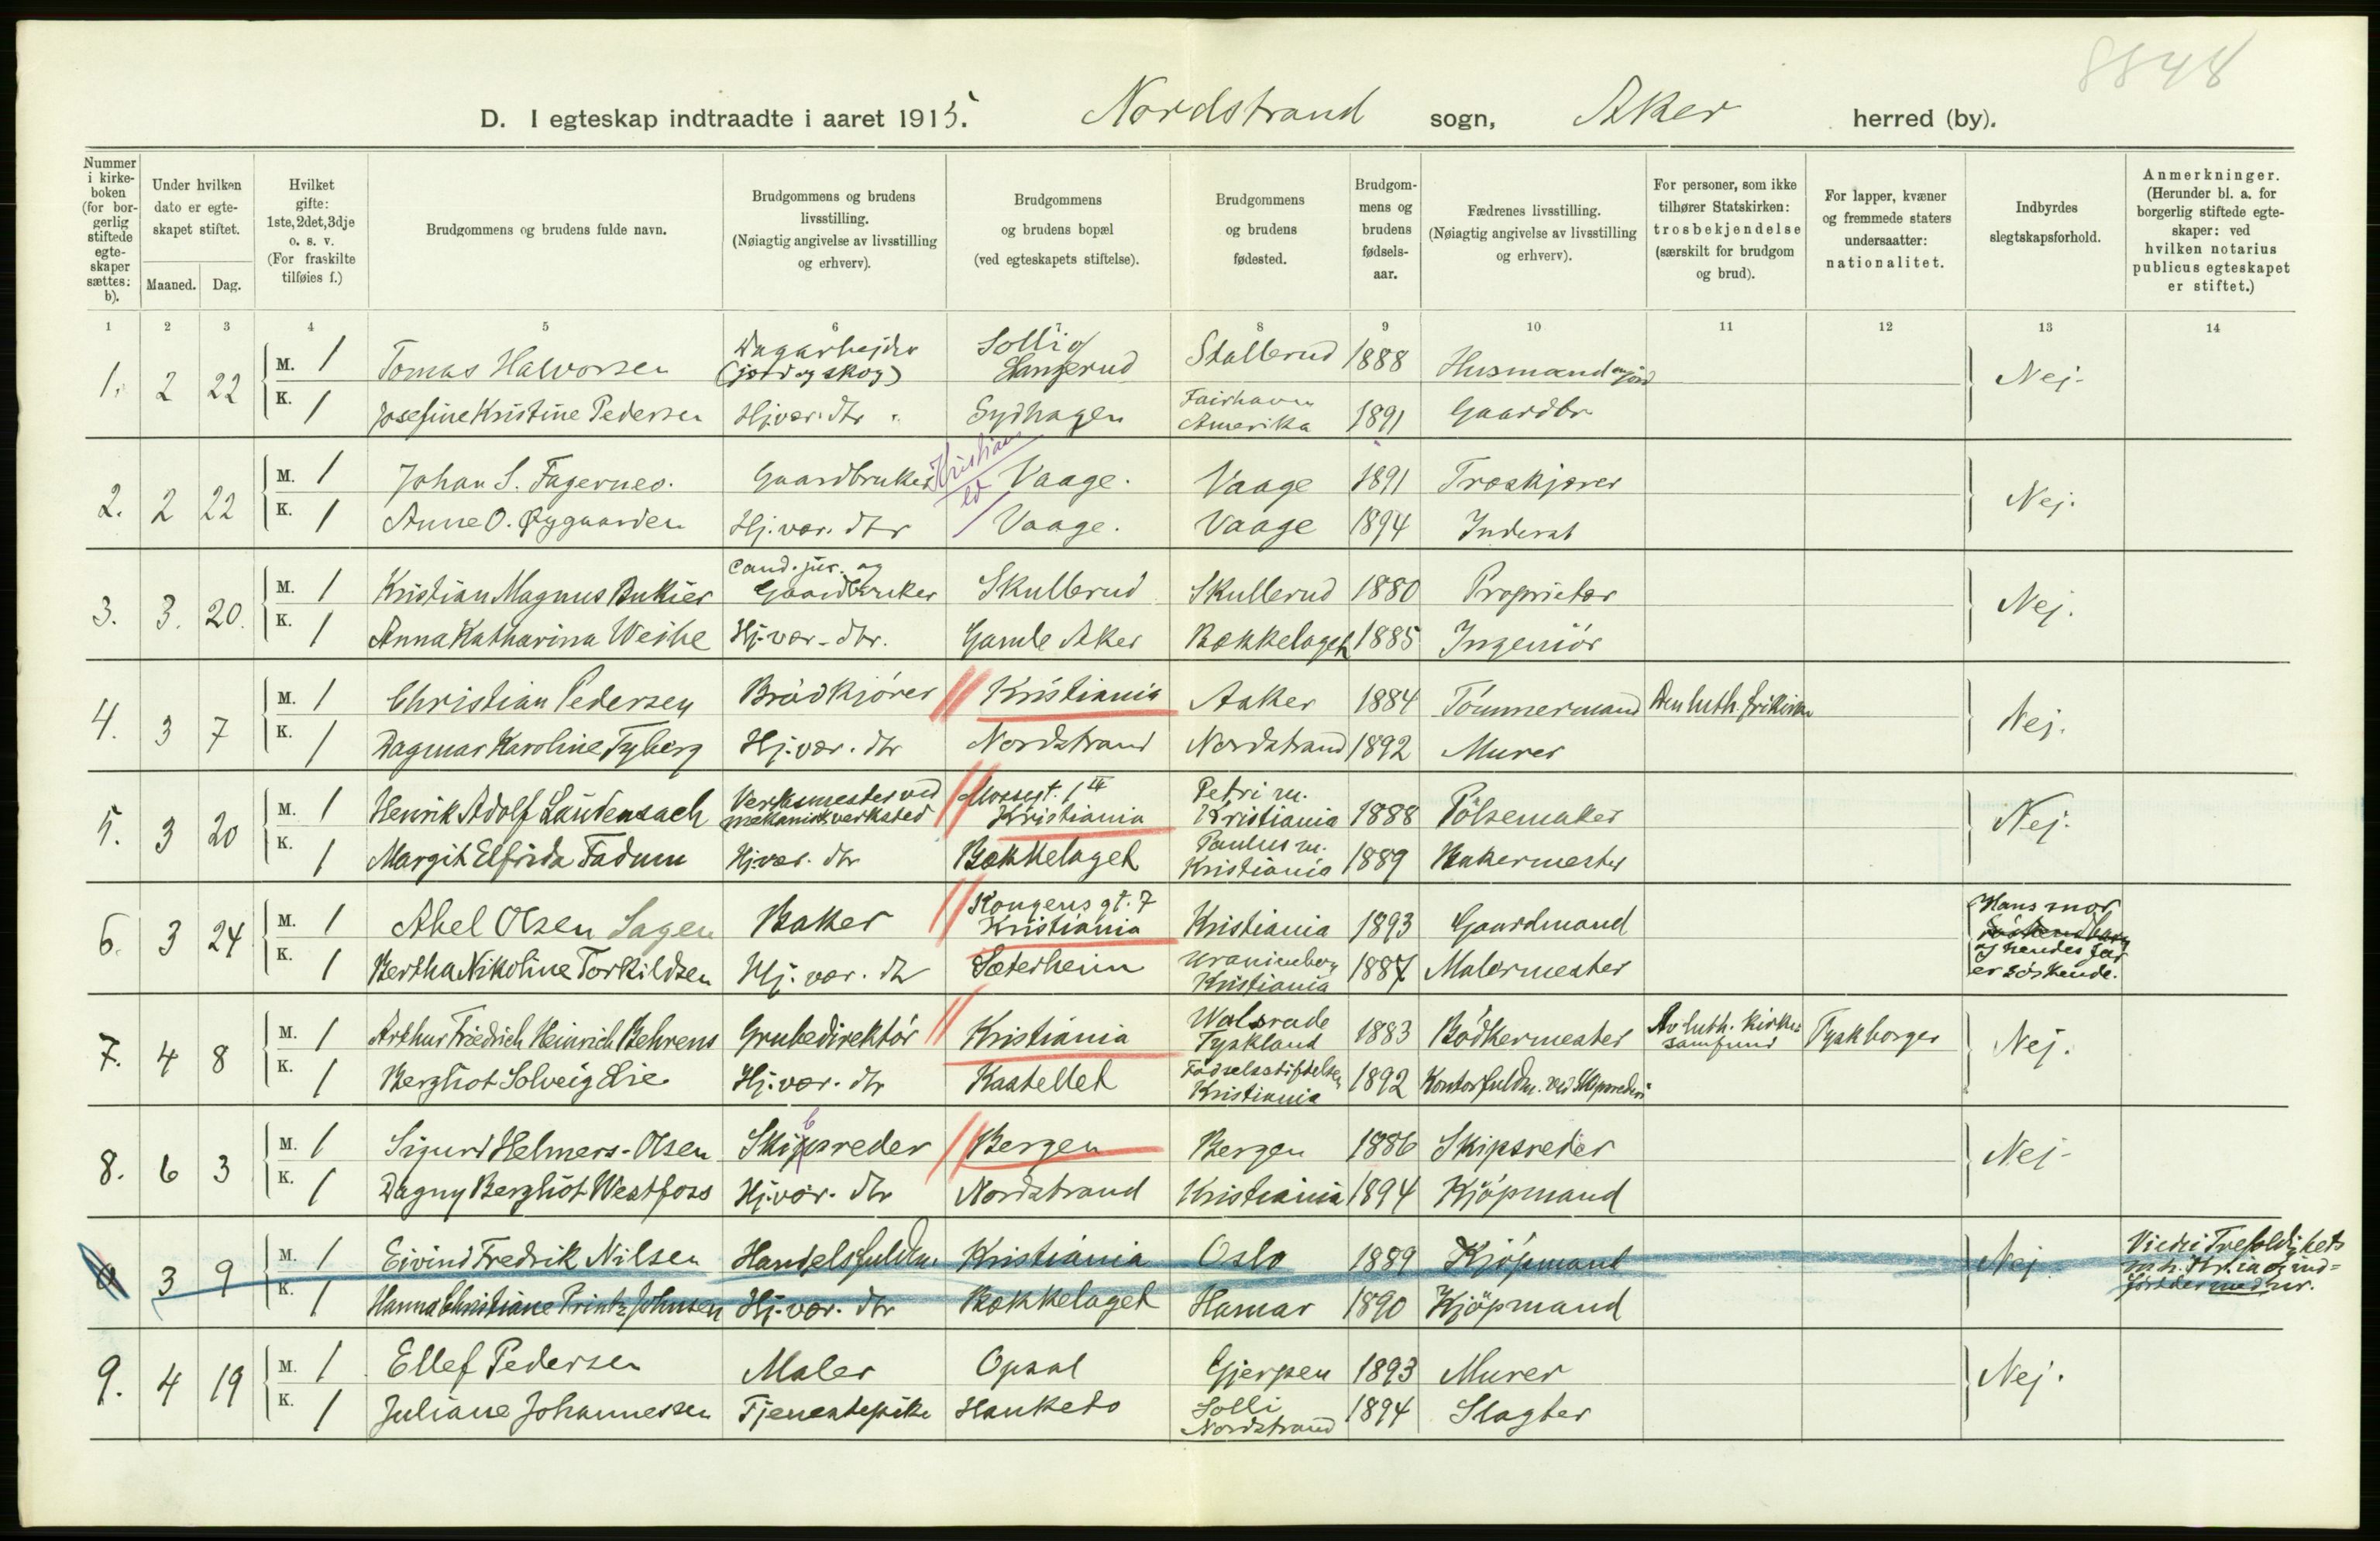 8848
D. I egteskap indtraadte i aaret 1915. Nordstrand sogn, Aker herred (by).
Nummer i kirkeboken (for borgerlig stiftede egteskaper sættes: b).
Under hvilken dato er egteskapet stiftet.
Maaned. Dag.
Hvilket gifte: 1ste, 2det, 3dje o. s. v. (For fraskilte tilføies f.)
Brudgommens og brudens fulde navn.
Brudgommens og brudens livsstilling. (Nøiagtig angivelse av livsstilling og erhverv).
Brudgommens og brudens bopæl (ved egteskapets stiftelse).
Brudgommens og brudens fødested.
Brudgommens og brudens fødselsaar.
Fædrenes livsstilling. (Nøiagtig angivelse av livsstilling og erhverv).
For personer, som ikke tilhører Statskirken: trosbekjendelse (særskilt for brudgom og brud).
For lapper, kvæner og fremmede staters undersaatter: nationalitet.
Indbyrdes slegtskapsforhold.
Anmerkninger. (Herunder bl. a. for borgerlig stiftede egteskaper: ved hvilken notarius publicus egteskapet er stiftet.)
1 2 3 4 5 6 7 8 9 10 11 12 13 14
1. 2 22 M. 1 Tomas Halvorsen Dagarbejder (jord og skog) Solli Stallerud 1888 Husmand m jord Nej.
K. 1 Josefine Kristine Pedersen Hj.vær. dtr Sydhagen Fairhaven Amerika 1891 Gaardbr.
2. 2 22 M. 1 Johan S. Fagernes. Gaardbruker Vaage. Vaage 1891 Træskjærer Nej.
K. 1 Anne O. Øygaarden Hj.vær. dtr Vaage. Vaage 1894 Inderst
3. 3. 20. M. 1 Kristian Magnus Bukier Cand. jur. og Gaardbruker Skullerud Skullerud 1880 Proprietær Nej.
K. 1 Anna Katharina Weihe Hj.vær. dtr. Gamle Aker Bækkelaget 1885 Ingeniör
4. 3 7 M. 1 Christian Pedersen Brödkjörer Kristiania Asker 1884 Tömmermand Den luth. frikirke Nej.
K. 1 Dagmar Karoline Tyberg Hj.vær. dtr Nordstrand Nordstrand 1892 Murer
5. 3 20 M. 1 Henrik Adolf Laudensach Verksmester ved mekanisk verksted Mossegt. 1 Kristiania Petri m. Kristiania 1888 Pölsemaker Nej.
K. 1 Margit Elfrida Fadum Hj.vær. dtr Bækkelaget Paulus m. Kristiania 1889 Bakermester
6. 3 24 M. 1 Abel Olsen Sagen Baker Kongens gt. 7 Kristiania Kristiania 1893 Gaardmand Hans mor og hendes far er söskende.
K. 1 Bertha Nikoline Torkildsen Hj. vær. dtr Sæterheim Uranienborg Kristiania 1887 Malermester
7. 4 8 M. 1 Arthur Friedrich Heinrich Behrens Grubedirektör Kristiania Walsrode Tyskland 1883 Bödkermester Av luth. kirkesamfund Tysk borger Nej.
K. 1 Bergliot Solveig Lie Hj.vær. dtr Kastellet Födselsstiftelsen Kristiania 1892 Kontorfuldm. ved Skipsrederi
8. 6 3 M. 1 Sigurd Helmers-Olsen Skipsreder Bergen Bergen 1886 Skipsreder Nej.
K. 1 Dagny Bergliot Westfoss Hj.vær. dtr Nordstrand Kristiania 1894 Kjöpmand
3 9 M. 1 Eivind Fredrik Nilsen Handelsfuldm. Kristiania Oslo 1889 Kjöpmand Nej. Viedi i Trefoldighets m. h. Kr.ia og indfört der med nr.
K. 1 Hanna Christiane Printz Johnsen Hj.vær. dtr Bækkelaget Hamar 1890 Kjöpmand
9. 4 19 M. 1 Ellef Pedersen Maler Opsal Gjerpen 1893 Murer Nej.
K. 1 Juliane Johannessen Tjenestepike Hauketo Solli Nordstrand 1894 Slagter